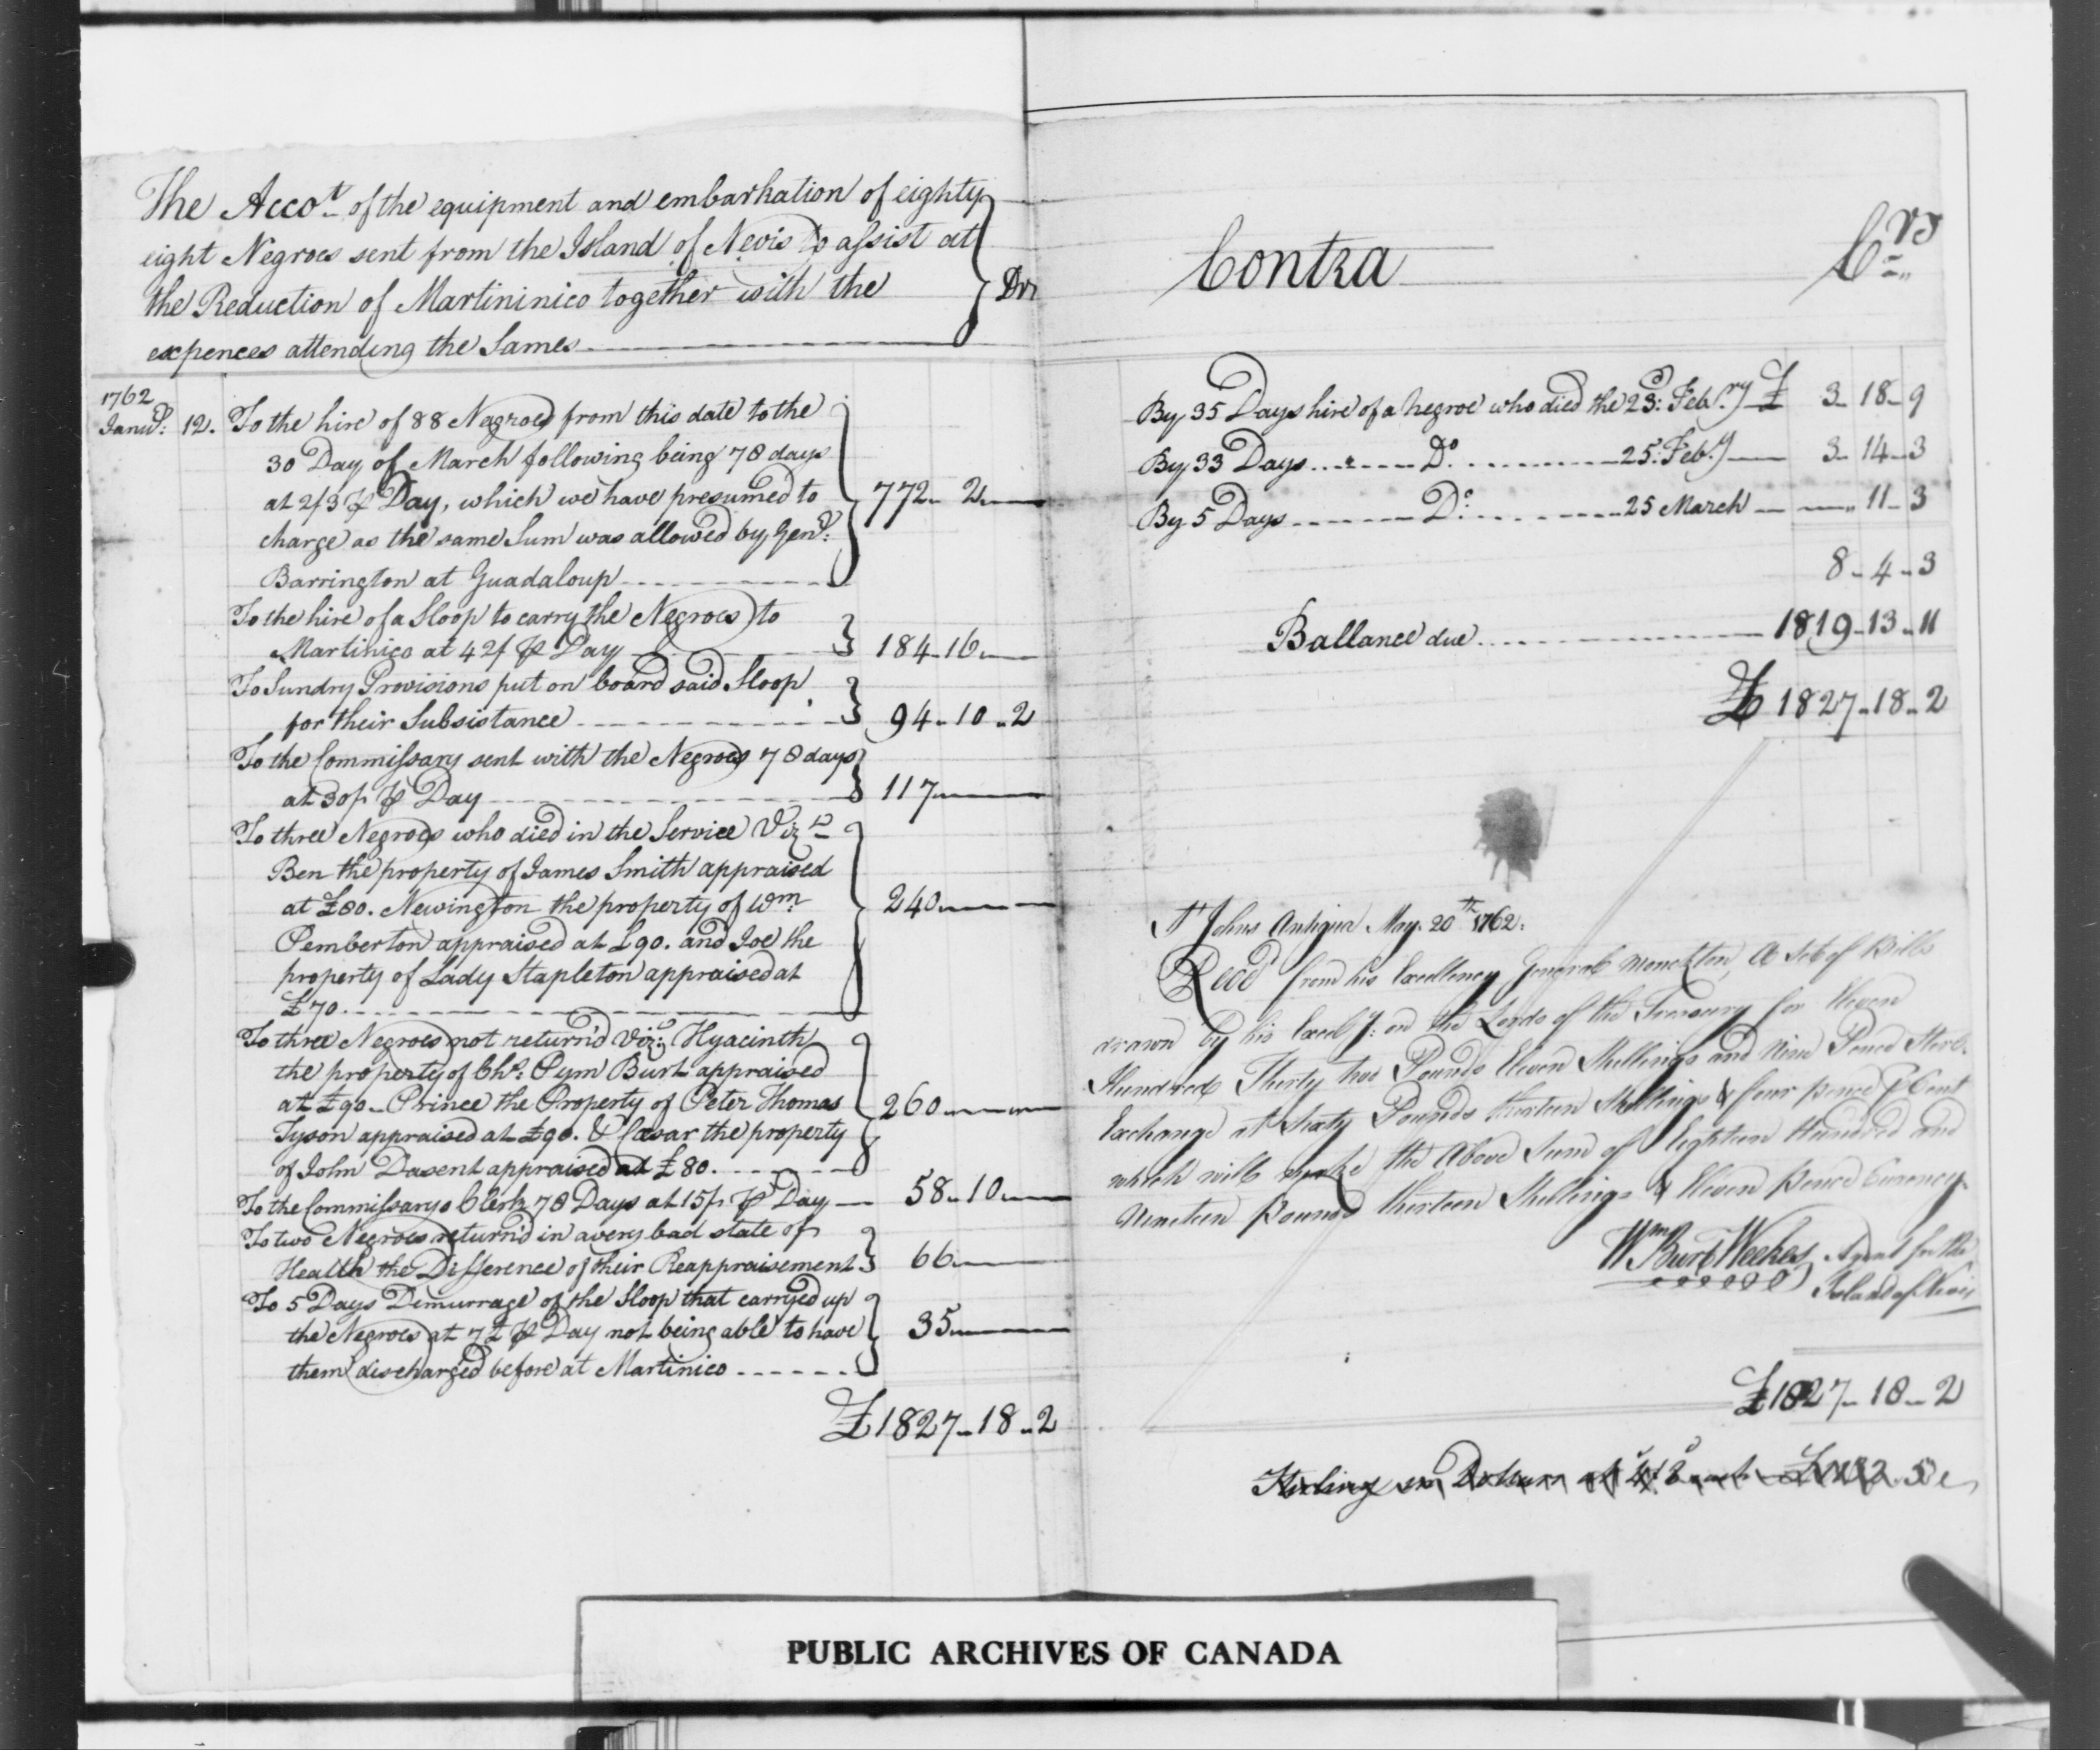 The Accot. of the equipment and embarkation of eighty
eight Negroes sent from the Island of Nevis to assist at
the Reduction of Martininico together with the
expences attending the Same
Dr.
1762
Janry: 12. To the hire of 88 Negroes from this date to the
30 Day of March following being 78 days
at 2/3 ⅌ Day, which we have presumed to
charge as the same Sum was allowed by Genl:
Barrington at Guadaloup
772- 2
To the hire of a Sloop to carry the Negroes to
Martinico at 42/ ⅌ Day 184-16
To Sundry Provisions put on board said Sloop
for their Subsistance 94-10-2
To the Commissary sent with the Negroes 78 days
at 30/ ⅌ Day 117
To three Negroes who died in the Service Vizt.
Ben the property of James Smith appraised
at £80. Newington the property of Wm. 240
Pemberton appraised at £90. and Joe the
property of Lady Stapleton appraised at
£70.
To three Negroes not return'd Viz: Hyacinth
the property of Chs: Pym Burt appraised
at £90 - Prince the Property of Peter Thomas 260
Tyson appraised at £90. & Cæsar the property
of John Dasent appraised at £80.
To the Commissarys Clerk 78 Days at 15/ ⅌ Day 58-10
To two Negroes return'd in a very bad state of
Health the Difference of their Reappraisement 66
To 5 Days Demurrage of the Sloop that carryed up
the Negroes at 7£ ⅌ Day not being able to have 35
them discharged before at Martinico
£1827-18-2
Contra Crs
By 35 Days hire of a Negroe who died the 23d: Febry £ 3-18-9
By 33 Days Do. 25: Feby 3-14-3
By 5 Days Do. 25 March 11-3
8-4-3
Ballance due 1819-13-11
£ 1827-18-2
St Johns Antigua May 20th 1762.
Recd from his Excellency General Monckton, a Set of Bills
drawn by his Excelly: on the Lords of the Treasury for Eleven
Hundred Thirty two Pounds Eleven Shillings and Nine Pence Sterl.
Exchange at Sixty Pounds thirteen Shillings & four pence ⅌ Cent
which will make the Above Sum of Eighteen Hundred and
Nineteen Pounds thirteen Shillings & Eleven pence Currency.
Wm Burt Weekes Agent for the
Island of Nevis
£1827-18-2
Sterling in Dollars at 4/8 each
PUBLIC ARCHIVES OF CANADA